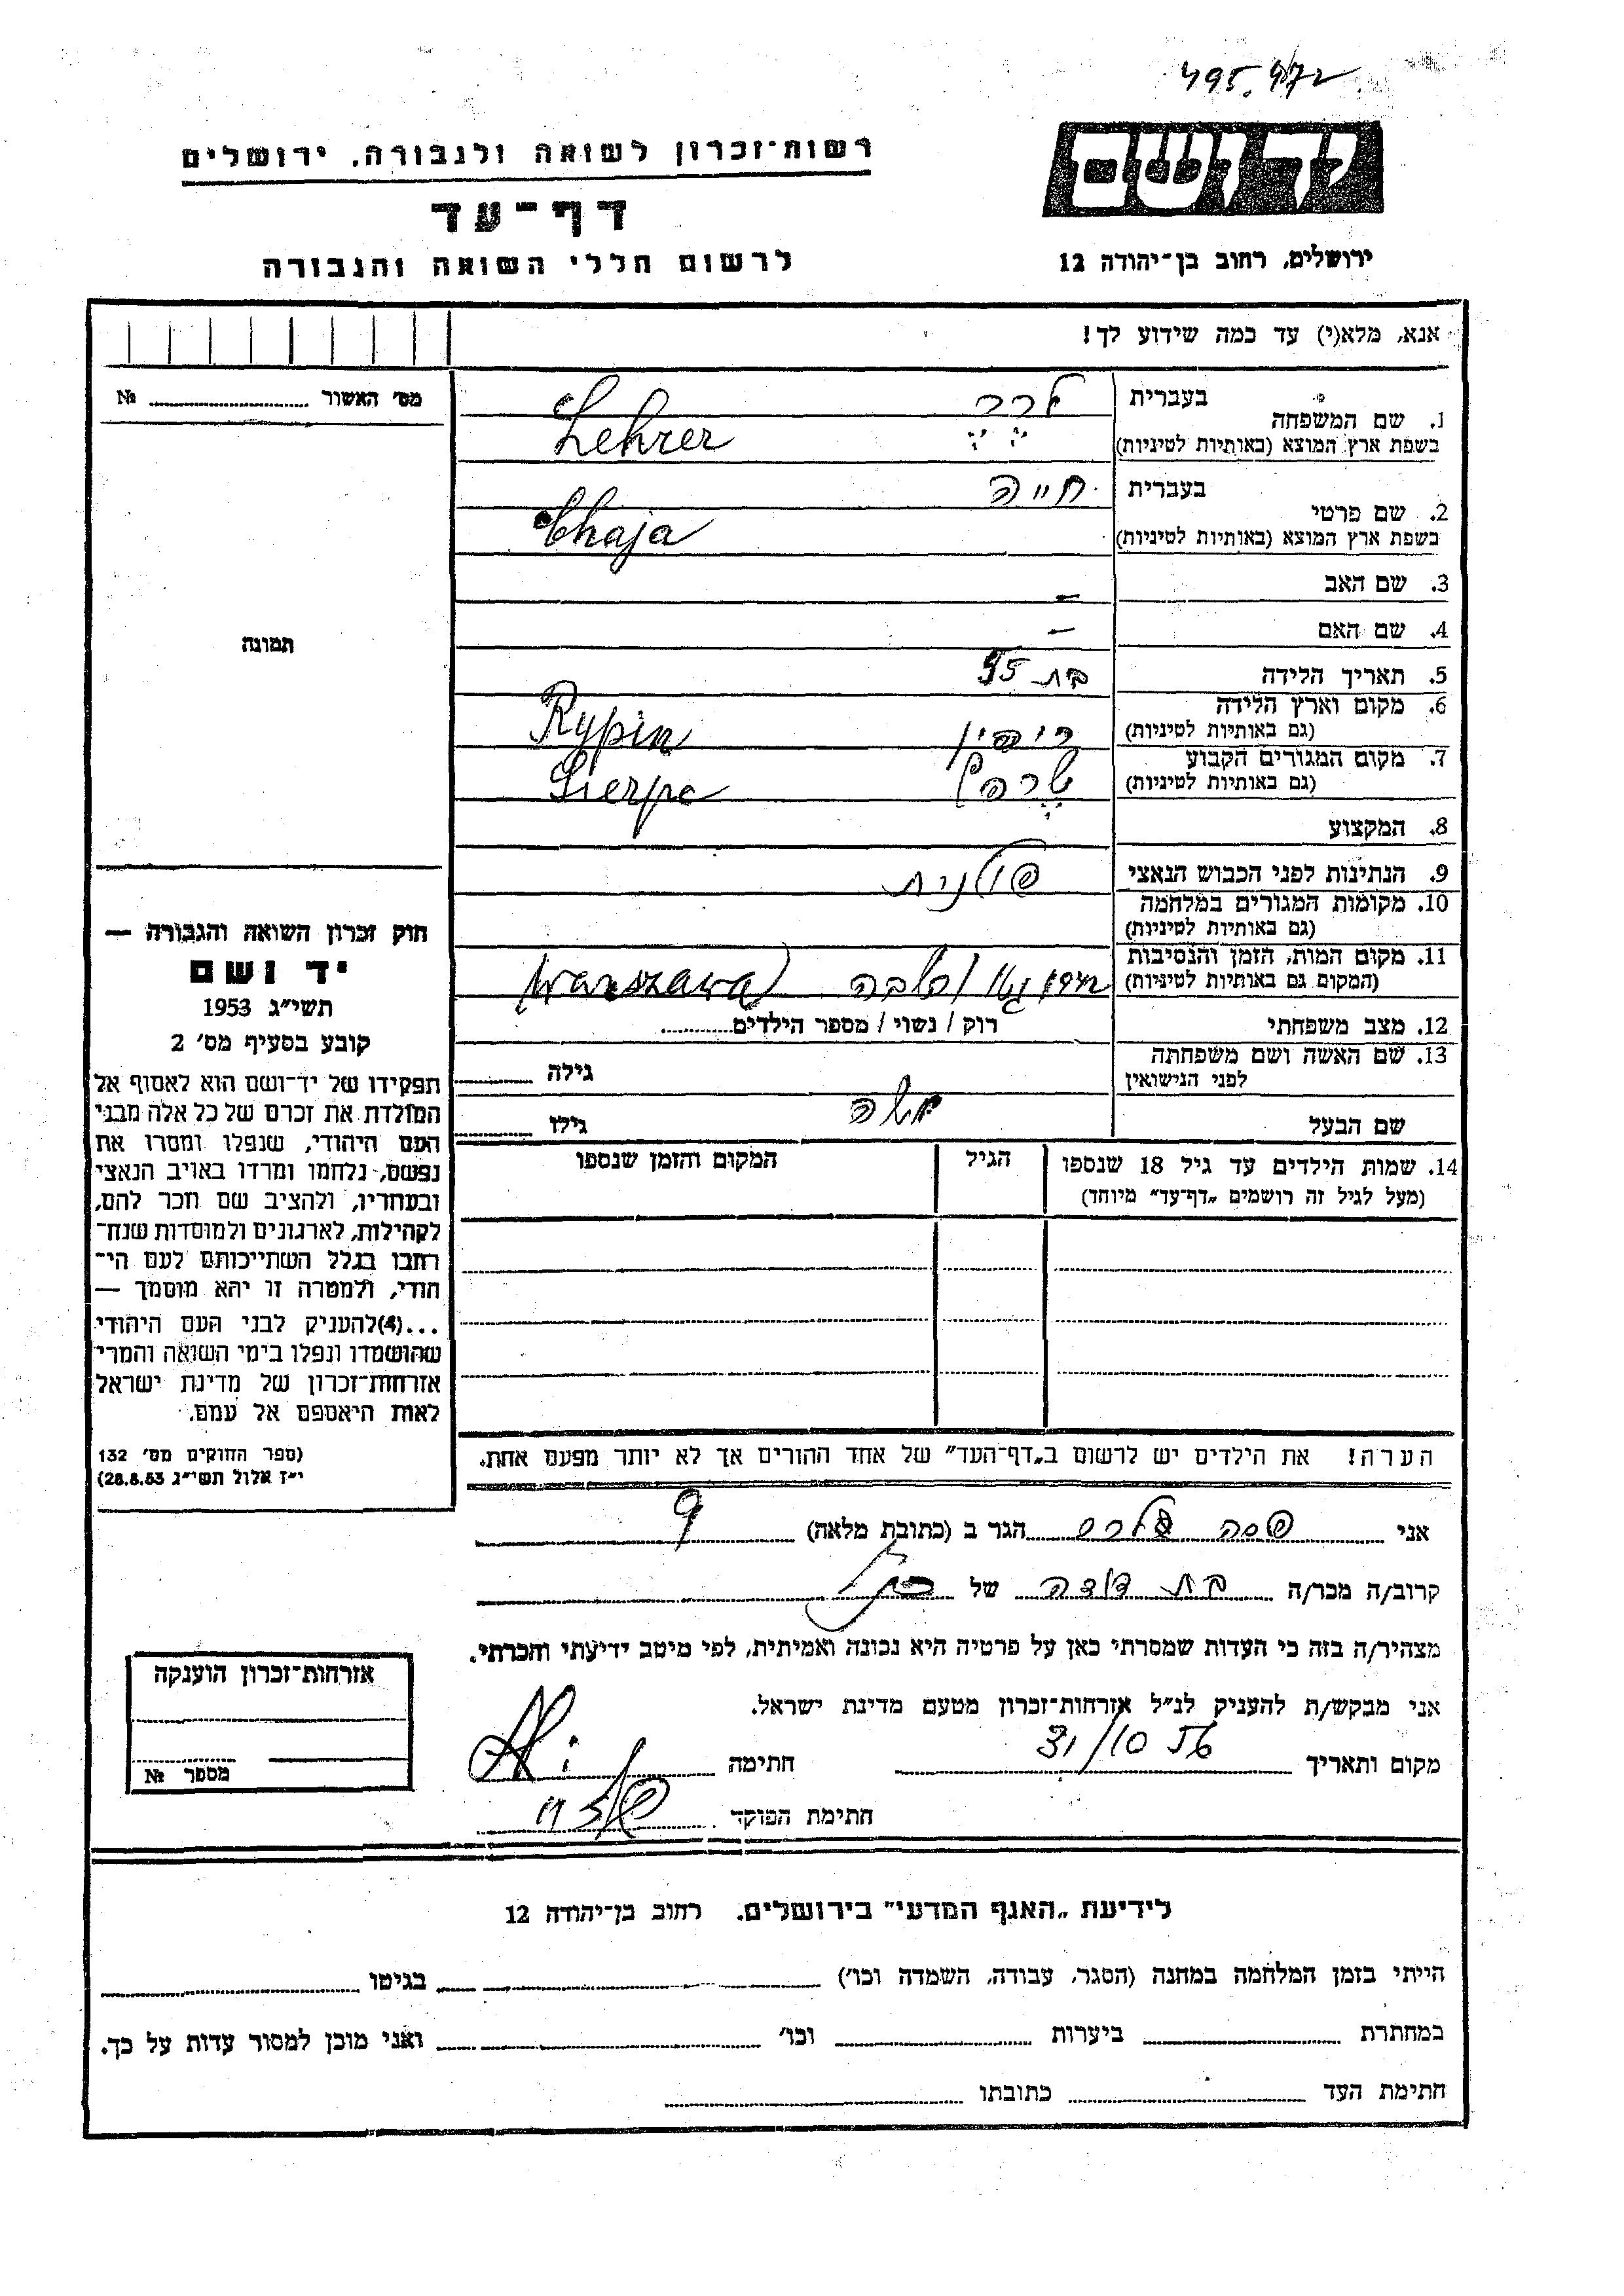 495.472
יד ושם
רשות־זכרון לשואה ולגבורה, ירושלים
דף־עד
לרשום חללי השואה והגבורה
ירושלים, רחוב בן־יהודה 12
אנא, מלא(י) עד כמה שידוע לך!
מס׳ האשור № 
תמונה
1. שם המשפחה
בעברית לרר
בשפת ארץ המוצא (באותיות לטיניות) Lehrer
2. שם פרטי
בעברית חייה
בשפת ארץ המוצא (באותיות לטיניות) Chaja
3. שם האב –
4. שם האם –
5. תאריך הלידה בת 55
6. מקום וארץ הלידה
(גם באותיות לטיניות) ריפין Rypin
7. מקום המגורים הקבוע
(גם באותיות לטיניות) שרפץ Sierpc
8. המקצוע
9. הנתינות לפני הכבוש הנאצי פולנית
10. מקומות המגורים במלחמה
(גם באותיות לטיניות)
11. מקום המות, הזמן והנסיבות
(המקום גם באותיות לטיניות) Warszawa
12. מצב משפחתי רוק / נשוי / מספר הילדים
13. שם האשה ושם משפחתה
לפני הנישואין גילה
שם הבעל משה גילו
14. שמות הילדים עד גיל 18 שנספו
(מעל לגיל זה רושמים „דף־עד״ מיוחד)
הגיל
המקום והזמן שנספו
הערה! את הילדים יש לרשום ב„דף־העד״ של אחד ההורים אך לא יותר מפעם אחת.
חוק זכרון השואה והגבורה —
יד ושם
תשי״ג 1953
קובע בסעיף מס׳ 2
תפקידו של יד־ושם הוא לאסוף אל
המולדת את זכרם של כל אלה מבני
העם היהודי, שנפלו ומסרו את
נפשם, נלחמו ומרדו באויב הנאצי
ובעוזריו, ולהציב שם וזכר להם,
לקהילות, לארגונים ולמוסדות שנח־
רבו בגלל השתייכותם לעם הי־
הודי, ולמטרה זו יהא מוסמך —
...(4)להעניק לבני העם היהודי
שהושמדו ונפלו בימי השואה והמרי
אזרחות־זכרון של מדינת ישראל
לאות היאספם אל עמם.
(ספר החוקים מס׳ 132
י״ז אלול תשי״ג 28.8.53)
אני פסה הגר ב (כתובת מלאה)
קרוב/ה מכר/ה בת דודה של
מצהיר/ה בזה כי העדות שמסרתי כאן על פרטיה היא נכונה ואמיתית, לפי מיטב ידיעתי והכרתי.
אני מבקש/ת להעניק לנ״ל אזרחות־זכרון מטעם מדינת ישראל.
מקום ותאריך חתימה
חתימת הפוקד
אזרחות־זכרון הוענקה
מספר №
לידיעת „האגף המדעי״ בירושלים. רחוב בן־יהודה 12
הייתי בזמן המלחמה במחנה (הסגר, עבודה, השמדה וכו׳) בגיטו
במחתרת ביערות וכו׳ ואני מוכן למסור עדות על כך.
חתימת העד כתובתו